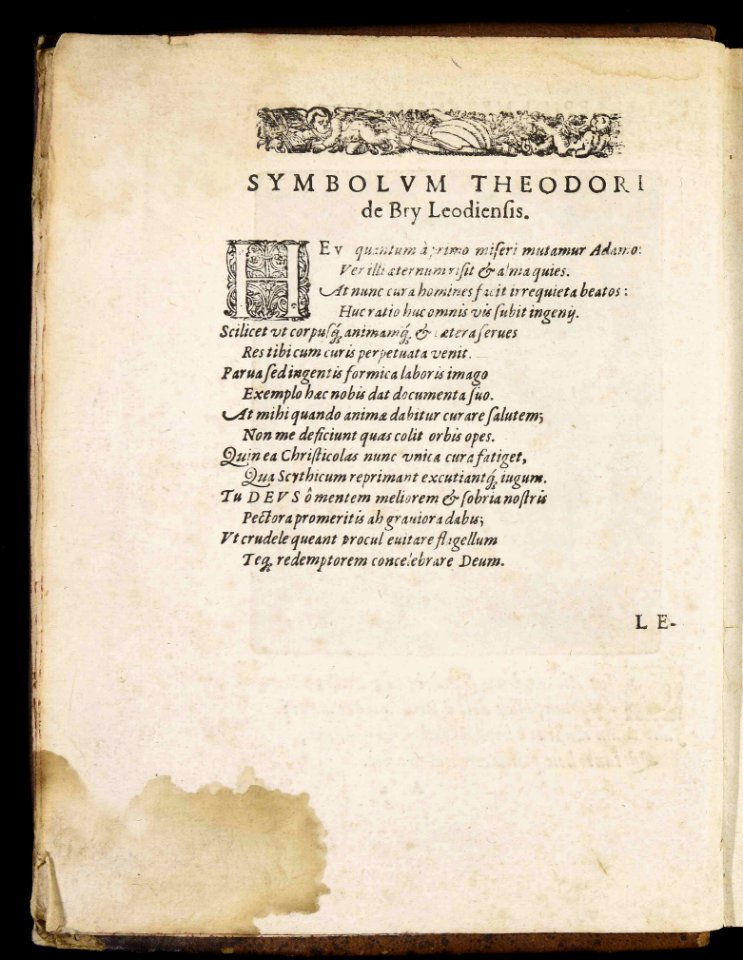 SYMBOLVM THEODORI
de Bry Leodienſis.
HEV quantum à primo miſeri mutamur Adamo:
Ver illi æternum riſit & alma quies.
At nunc cura homines facit irrequieta beatos:
Huc ratio huc omnis vis ſubit ingenij.
Scilicet vt corpuſq́, animamq́, & cætera ſerues
Res tibi cum curis perpetuata venit.
Parua ſed ingentis formica laboris imago
Exemplo hæc nobis dat documenta ſuo.
At mihi quando animæ dabitur curare ſalutem;
Non me deficiunt quas colit orbis opes.
Quin ea Chriſticolas nunc vnica cura fatiget,
Qua Scythicum reprimant excutiantq́, iugum.
Tu DEVS ô mentem meliorem & ſobria noſtris
Pectora promeritis ah grauiora dabis;
Vt crudele queant procul euitare flagellum
Teq, redemptorem concelebrare Deum.
LE-